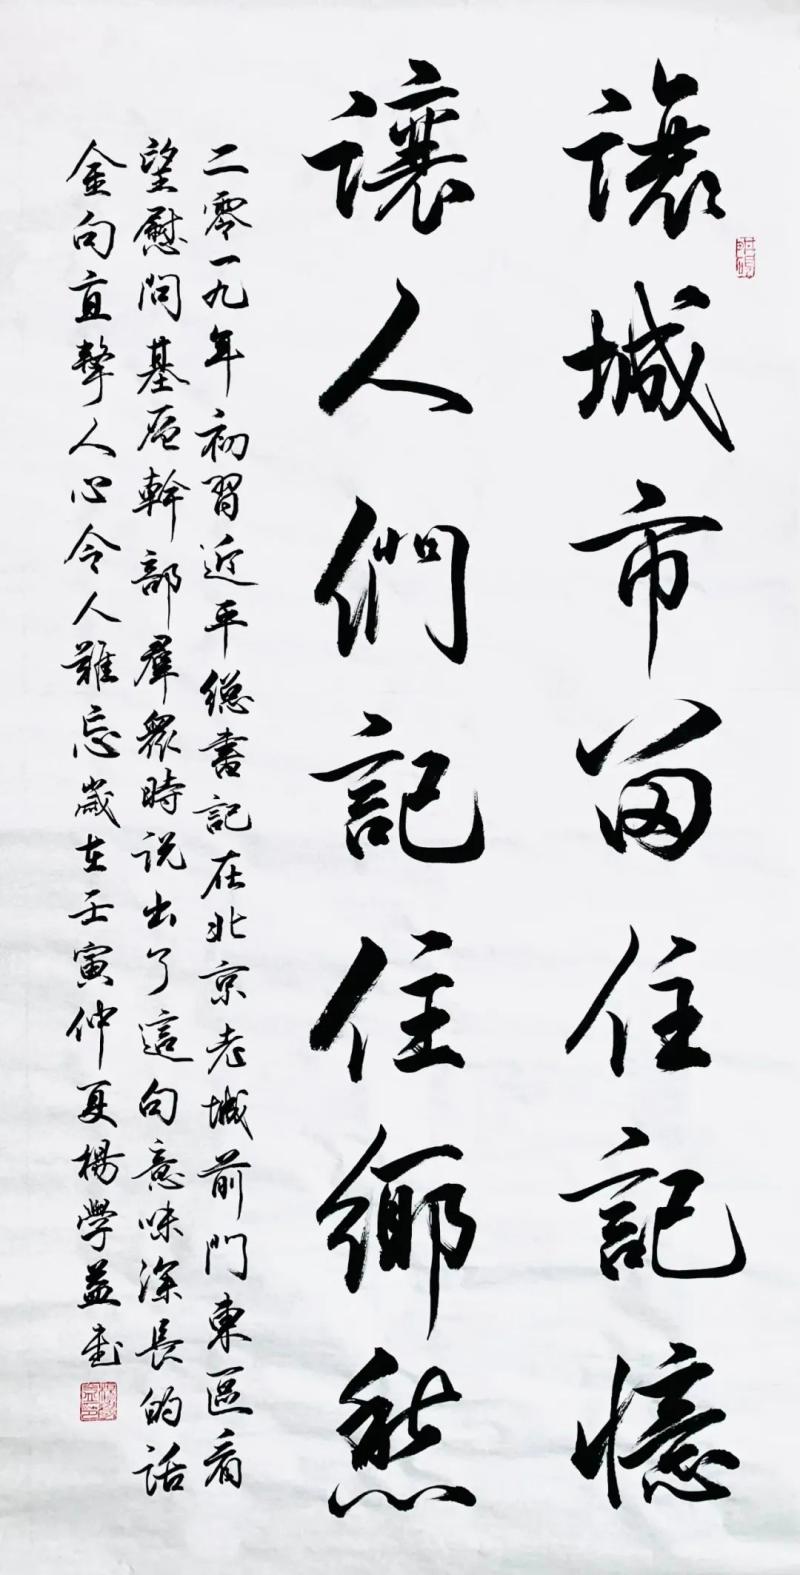 讓城市留住記憶
讓人們記住鄉愁
二零一九年初習近平總書記在北京老城前門東區看
望慰問基层幹部羣衆時説出了這句意味深長的話
金句直擊人心令人難忘歲在壬寅仲夏楊學益書